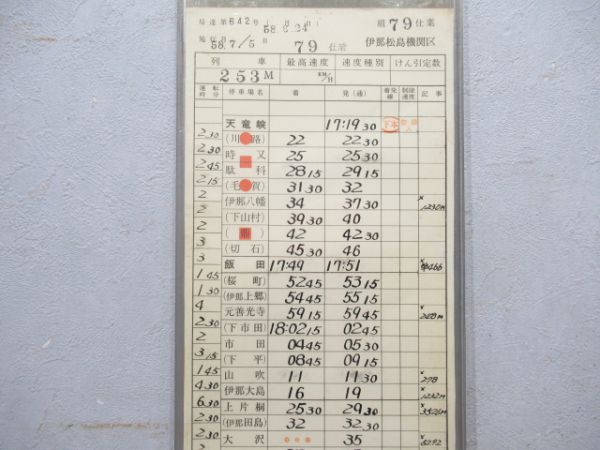 局達第642号 58.6.24 組79仕業
施行月日 58.7/5日 79仕業 伊那松島機関区
列車 最高速度 速度種別 けん引定数
253M KM/H
運転時分 停車場名 着 発(通) 着発線 制限速度 記事
天竜峡 17:19 30 下本
2 30 (川路) 22 22 30
2 30 時又 25 25 30
2 45 駄科 28 15 29 15
2 15 (毛賀) 31 30 32
2 伊那八幡 34 37 30 ×1230M
2 (下山村) 39 30 40
2 (鼎) 42 42 30
3 (切石) 45 30 46
3 飯田 17:49 17:51
1 45 (桜町) 52 45 53 15
1 30 (伊那上郷) 54 45 55 15
4 元善光寺 59 15 59 45
2 30 (下市田) 18:02 15 02 45
2 市田 04 45 05 30
3 15 (下平) 08 45 09 15
1 45 山吹 11 11 30 ×278
4 30 伊那大島 16 19 ×1232M
6 30 上片桐 25 30 29 30
2 30 (伊那田島) 32 32 30
2 30 大沢 35